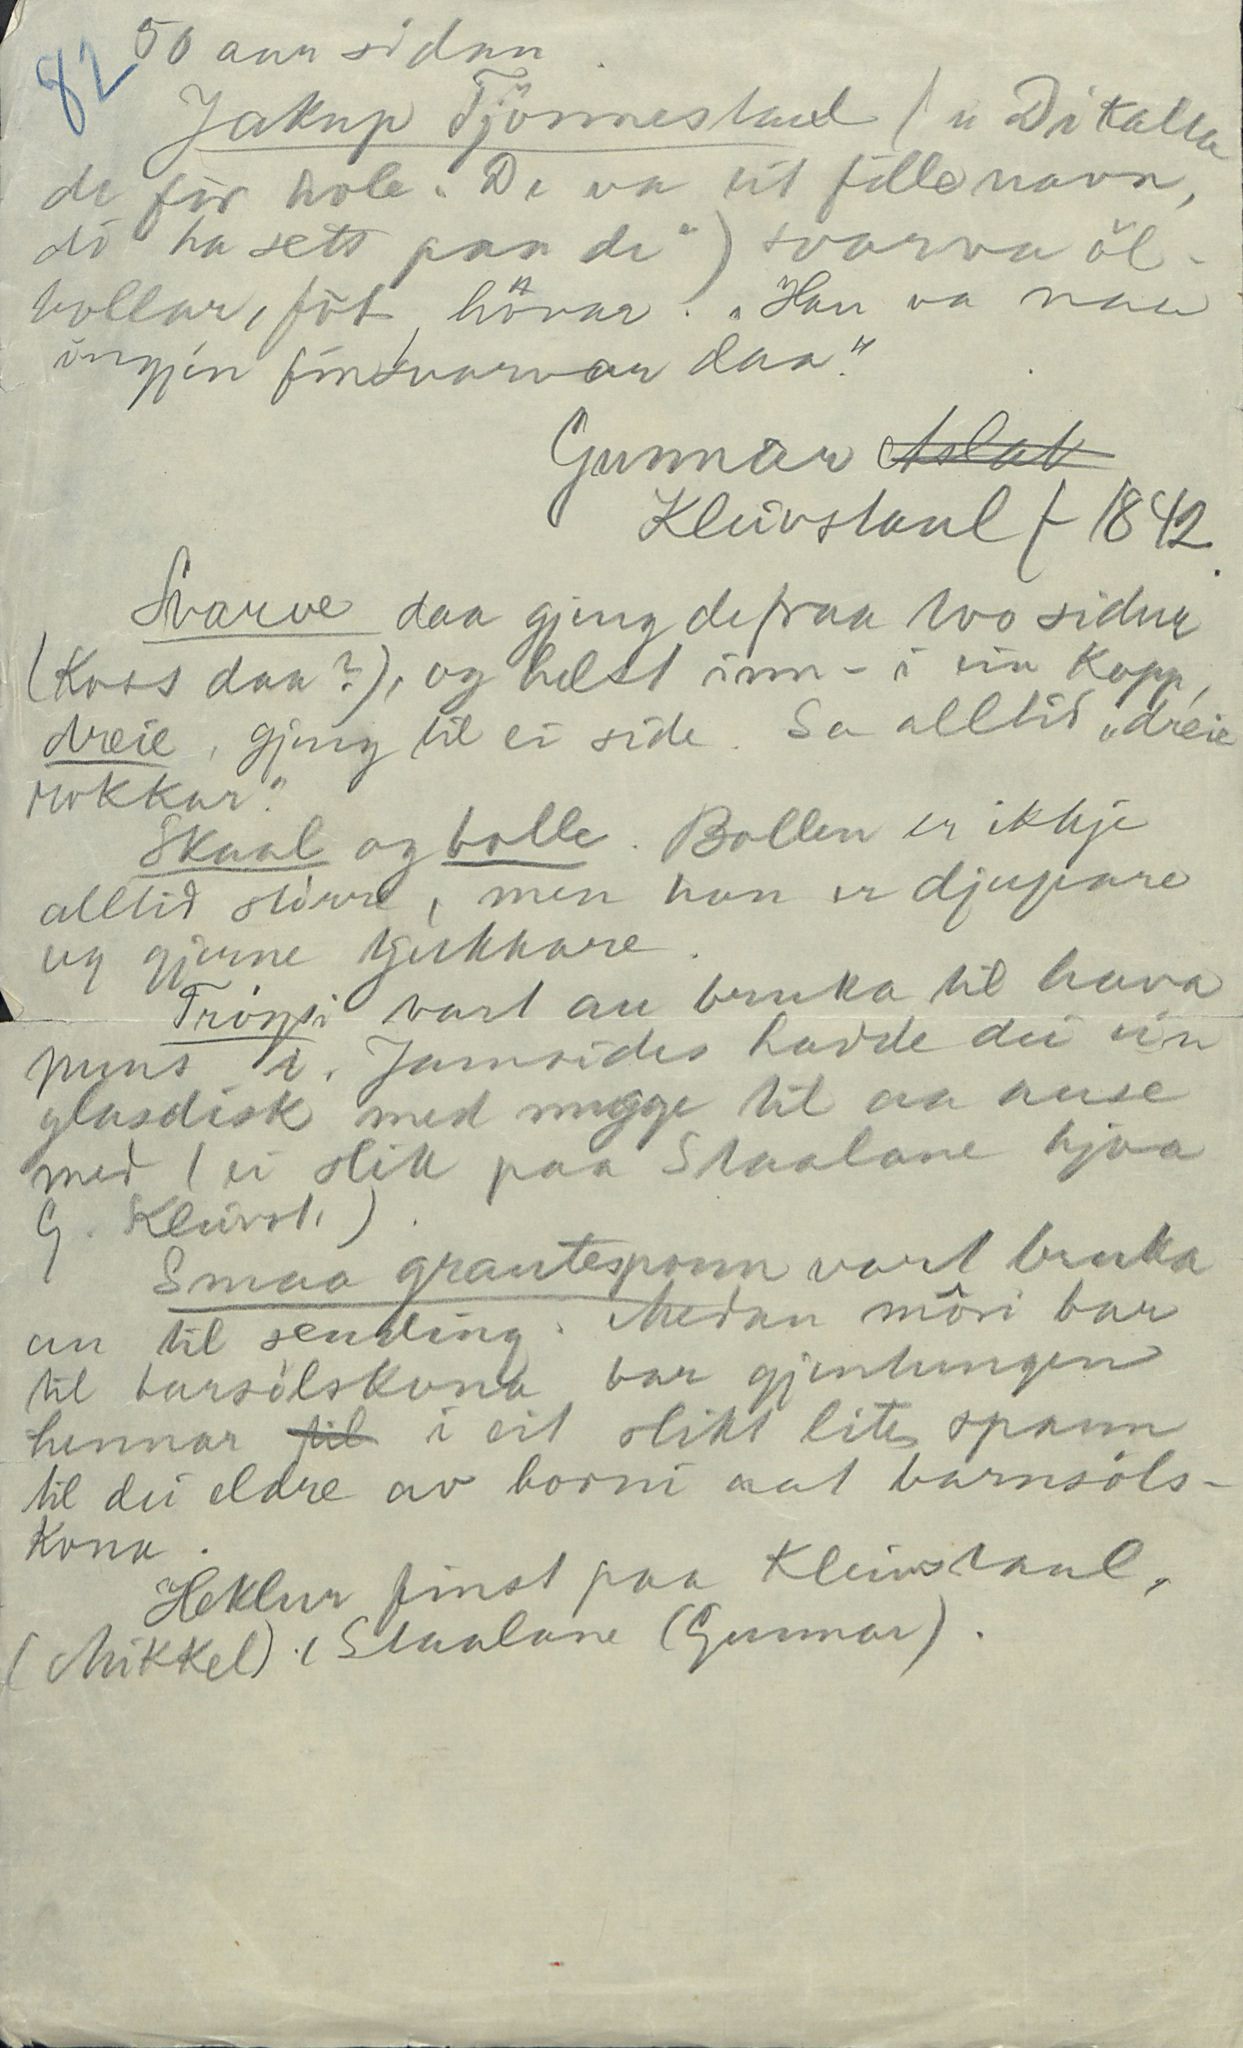 82
50 aar sidan.
Jakup Tjönnestaul („Di kalla
de för hole. De va eit fillenavn,
di ha sett paa di") svarva öl-
bollar, föt, hövar. „Han va naa
ingjin finsvarvar daa."
Gunnar Aslak
Kleivstaul f 1842.
Svarve daa gjeng de fraa two sidur
(Koss daa?), og helst inn- i ein kopp,
dreie, gjeng til ei side. Sa alltid „dreie
rokkar."
Skaal og bolle. Bollen er ikkje
alltid större, men han er djupare
og gjerne tjukkare.
Tröys vart au bruka til hava
puns i. Jamsides hadde dei ein
glasdisk med mugge til aa ause
med (ei slik paa Staalane hjaa
G. Kleivst.).
Smaa grautespann vart bruka
au til sending. Medan môri bar
til barsölskona bar gjentungen
hennar til i eit slikt lite spann
til dei eldre av borni aat barnsöls-
kona.
Heklur finst paa Kleivstaul,
(Mikkel), Staalane (Gunnar).